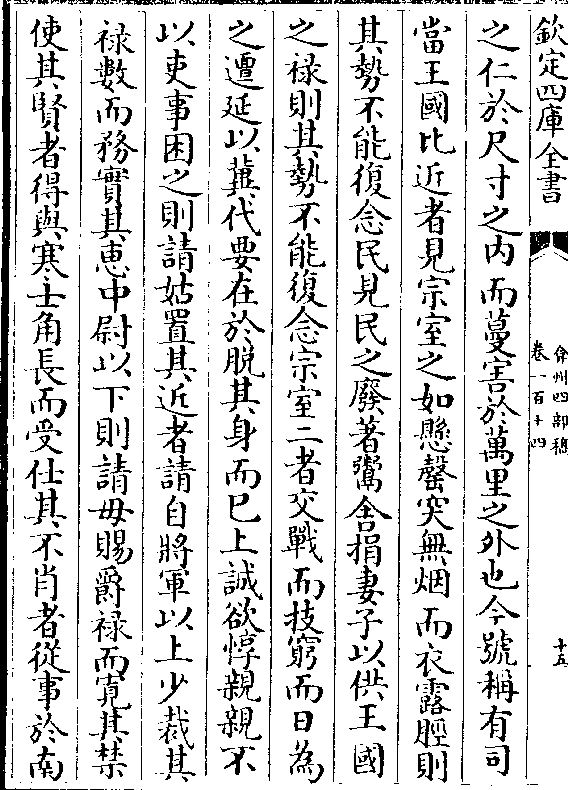 欽定四庫全書
弇州四部稿
卷一百十四
十五
之仁於尺寸之内而蔓害於萬里之外也今號稱有司
當王國比近者見宗室之如懸罄突無烟而衣露脛則
其勢不能復念民見民之廢著鬻舍捐妻子以供王國
之禄則其勢不能復念宗室二者交戰而技窮而日為
之遷延以冀代要在於脱其身而已上誠欲惇親親不
以吏事困之則請姑置其近者請自將軍以上少裁其
禄數而務實其惠中尉以下則請毋賜爵禄而寛其禁
使其賢者得與寒士角長而受仕其不肖者從事於南